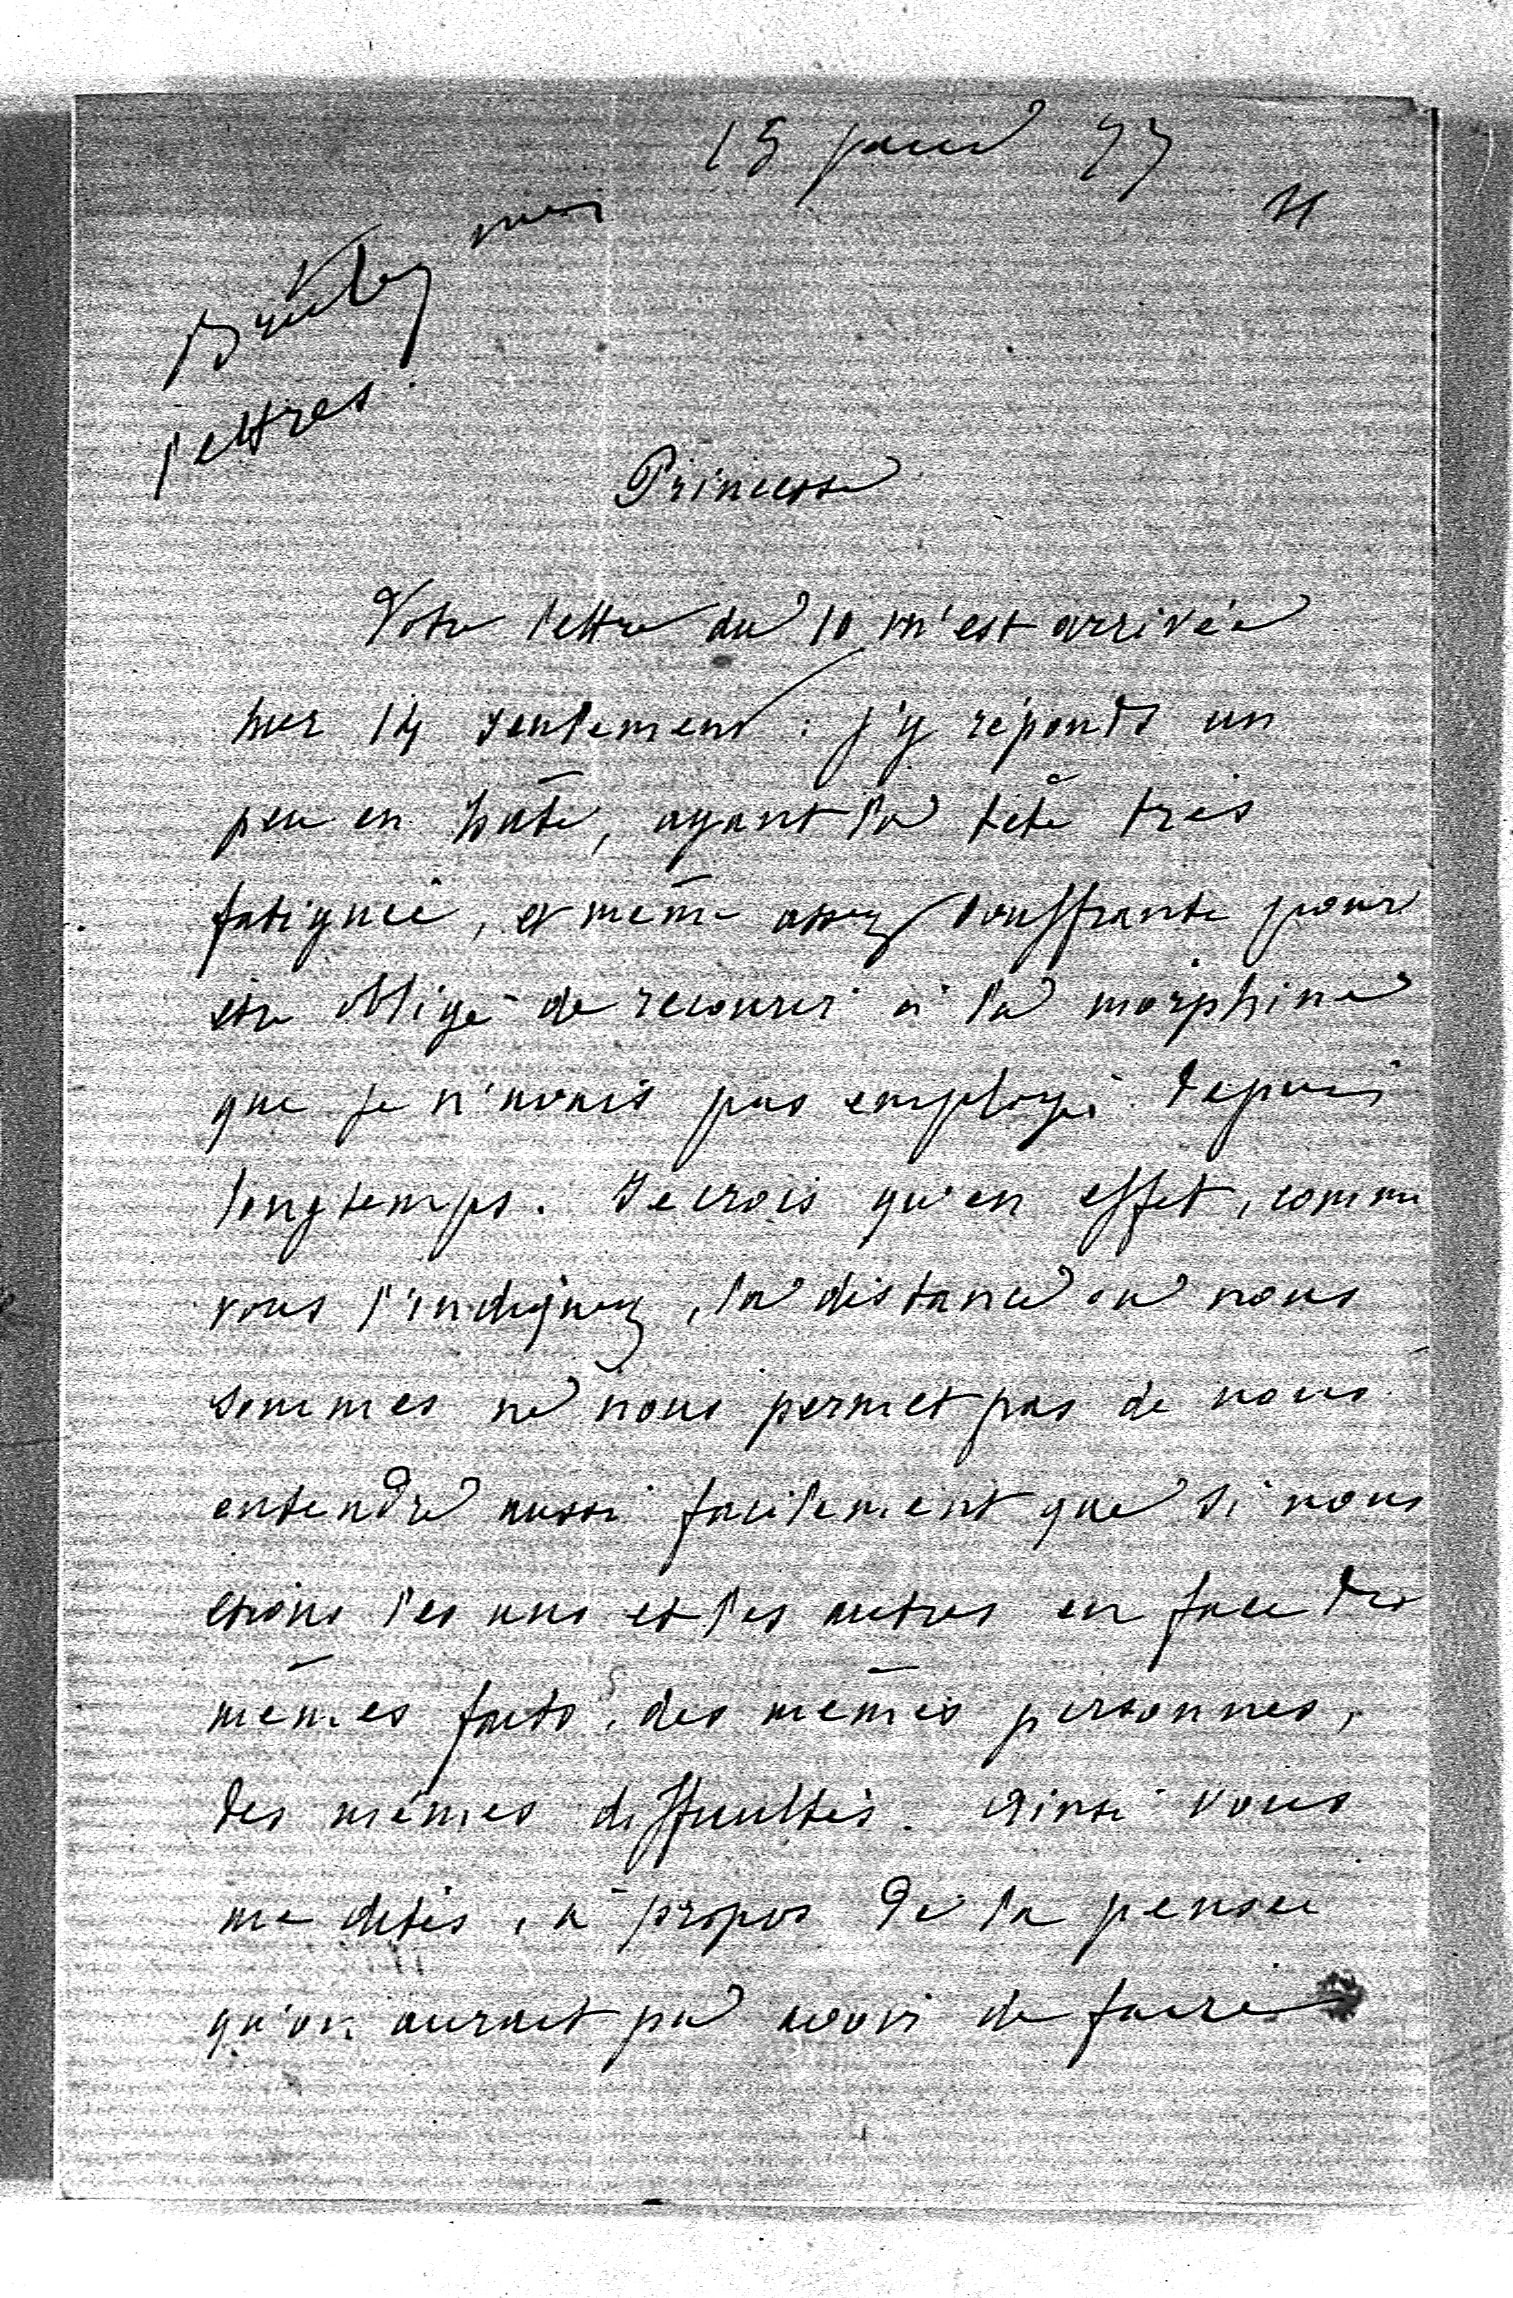 15 janv 77
mes
lettres.
Princesse
Votre lettre du 10 m'est arrivée
hier 14 seulement : j'y réponds un
peu en hâte, ayant la tête très
fatiguée, et même assez souffrante pour
être obligé de recourir à la morphine
que je n'avais pas employé depuis
longtemps. Je crois qu'en effet, comme
vous l'indiquez, la distance où nous
sommes ne nous permet pas de nous
entendre aussi facilement que si nous
étions les uns et les autres en face des
mêmes faits, des mêmes personnes,
des mêmes difficultés. Ainsi vous
me dites, à propos de la pensée
qu'on aurait pu avoir de faire